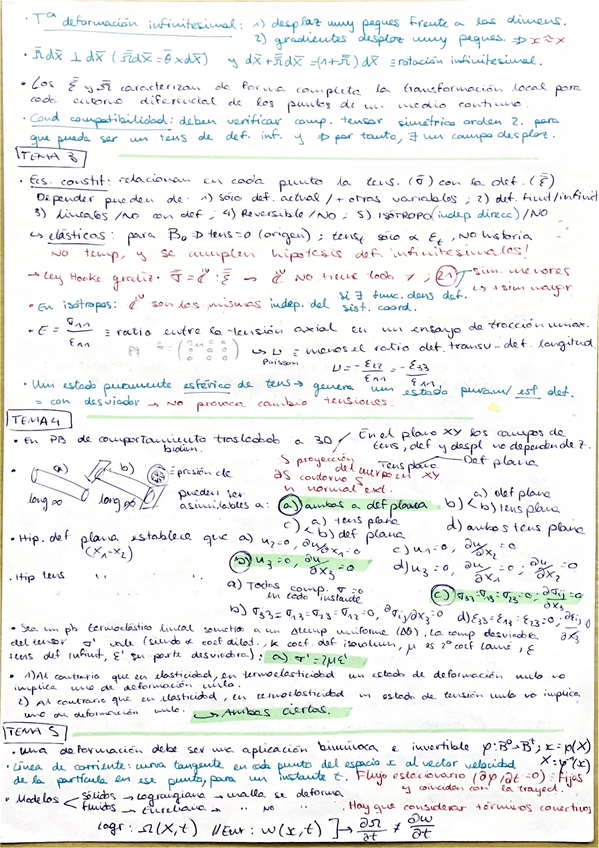 · Tª deformación infinitesimal: 1) desplaz muy peques frente a las dimens.
2) gradientes desplaz muy peques. ⇒ x ≈ X
· Ω̄dx̄ ⊥ dx̄ (Ω̄dx̄ = θ̄ × dx̄) y dx̄+Ω̄dx̄ = (1+Ω̄)dx̄ ≡ rotación infinitesimal.
· Los ε̄ y Ω̄ caracterizan de forma completa la transformación local para
cada entorno diferencial de los puntos de un medio continuo.
· Cond compatibilidad: deben verificar comp. tensor simétrico orden 2. para
que pueda ser un tens de def. inf. y ⇒ por tanto, ∃ un campo desplaz.
TEMA 3
· Ecs. constit: relacionan en cada punto la tens. (σ̄) con la def. (ε̄)
Depender pueden de: 1) sólo def. actual / + otras variables; 2) def. finit/infinit
3) lineales/NO con def; 4) Reversible/NO; 5) ISÓTROPO (indep direcc)/NO
↳ elásticas: para B₀ ⇒ tens=0 (origen); tensₜ solo α Eₜ, NO historia
NO temp, y se cumplen hipótesis def. infinitesimales!
→ Ley Hooke graliz. σ̄ = C : ε̄ → C NO tiene 21 sim. menores
si ∃ func. dens def. ↳ + sim mayor
· En isótropos: C son las mismas indep. del sist. coord.
· E = σ₁₁/ε₁₁ ≡ ratio entre la tensión axial en un ensayo de tracción uniax.
↳ ν = menos el ratio def. transv - def. longitud.
Poisson ν = -ε₂₂/ε₁₁ = -ε₃₃/ε₁₁
· Un estado puramente esférico de tens → genera un estado puram/ esf def.
= con desviador → NO provoca cambio tensiones.
TEMA 4
· En PB de comportamiento trasladab a 3D bidim. En el plano XY los campos de
tens, def y despl no dependen de z.
S proyección del cuerpo en XY Tens plana Def plana
∂S contorno S
n normal ext.
· a) b) ≡ presión cte
long ∞ long ∞ pueden ser asimilables a: a) ambas a def plana b) < a) def plana b) tens plana
c) < a) tens plana b) def plana d) ambos tens plana
· Hip. def plana establece que a) u₂=0, ∂u/∂x₁=0 c) u₁=0, ∂u/∂x₂=0
(X₁-X₂) b) u₃=0, ∂u/∂x₃=0 d) u₃=0, ∂u/∂x₁=0, ∂u/∂x₂=0
· Hip tens " " a) Todas comp. σ=0 en cada instante c) σ₃₃=σ₁₃=σ₂₃=0, ∂σij/∂x₃=0
b) σ₃₃=σ₁₃=σ₂₃=σ₁₂=0, ∂σij/∂x₃=0 d) ε₃₃=ε₁₃=ε₂₃=0, ∂εij/∂x₃=0
· Sea un pb termoelástico lineal sometido a un Δtemp uniforme (Δθ). La comp desviadora
del tensor σ' vale (siendo α coef dilat., k coef def isovolum, μ es 2º coef Lamé, ε
tens def infinit, ε' su parte desviadora): a) σ' = 2με'
· 1) Al contrario que en elasticidad, en termoelasticidad un estado de deformación nulo no
implica uno de deformación nula.
2) Al contrario que en elasticidad, en termoelasticidad un estado de tensión nulo no implica
uno de deformación nulo. ↳ Ambas ciertas.
TEMA 5
· una deformación debe ser una aplicación biunívoca e invertible φ: B⁰→Bᵗ; x=φ(X)
X=φ⁻¹(x)
· Línea de corriente: curva tangente en cada punto del espacio x al vector velocidad
de la partícula en ese punto, para un instante t. Flujo estacionario (∂φ/∂t=0) ≡ Fijas
y coinciden con la trayect.
· Modelos < sólidos → lagrangiana → malla se deforma
fluidos → euleriana → " NO " . Hay que considerar términos convectivos
Lagr: Ω(X,t) // Eur: w(x,t) ] → ∂Ω/∂t ≠ ∂w/∂t